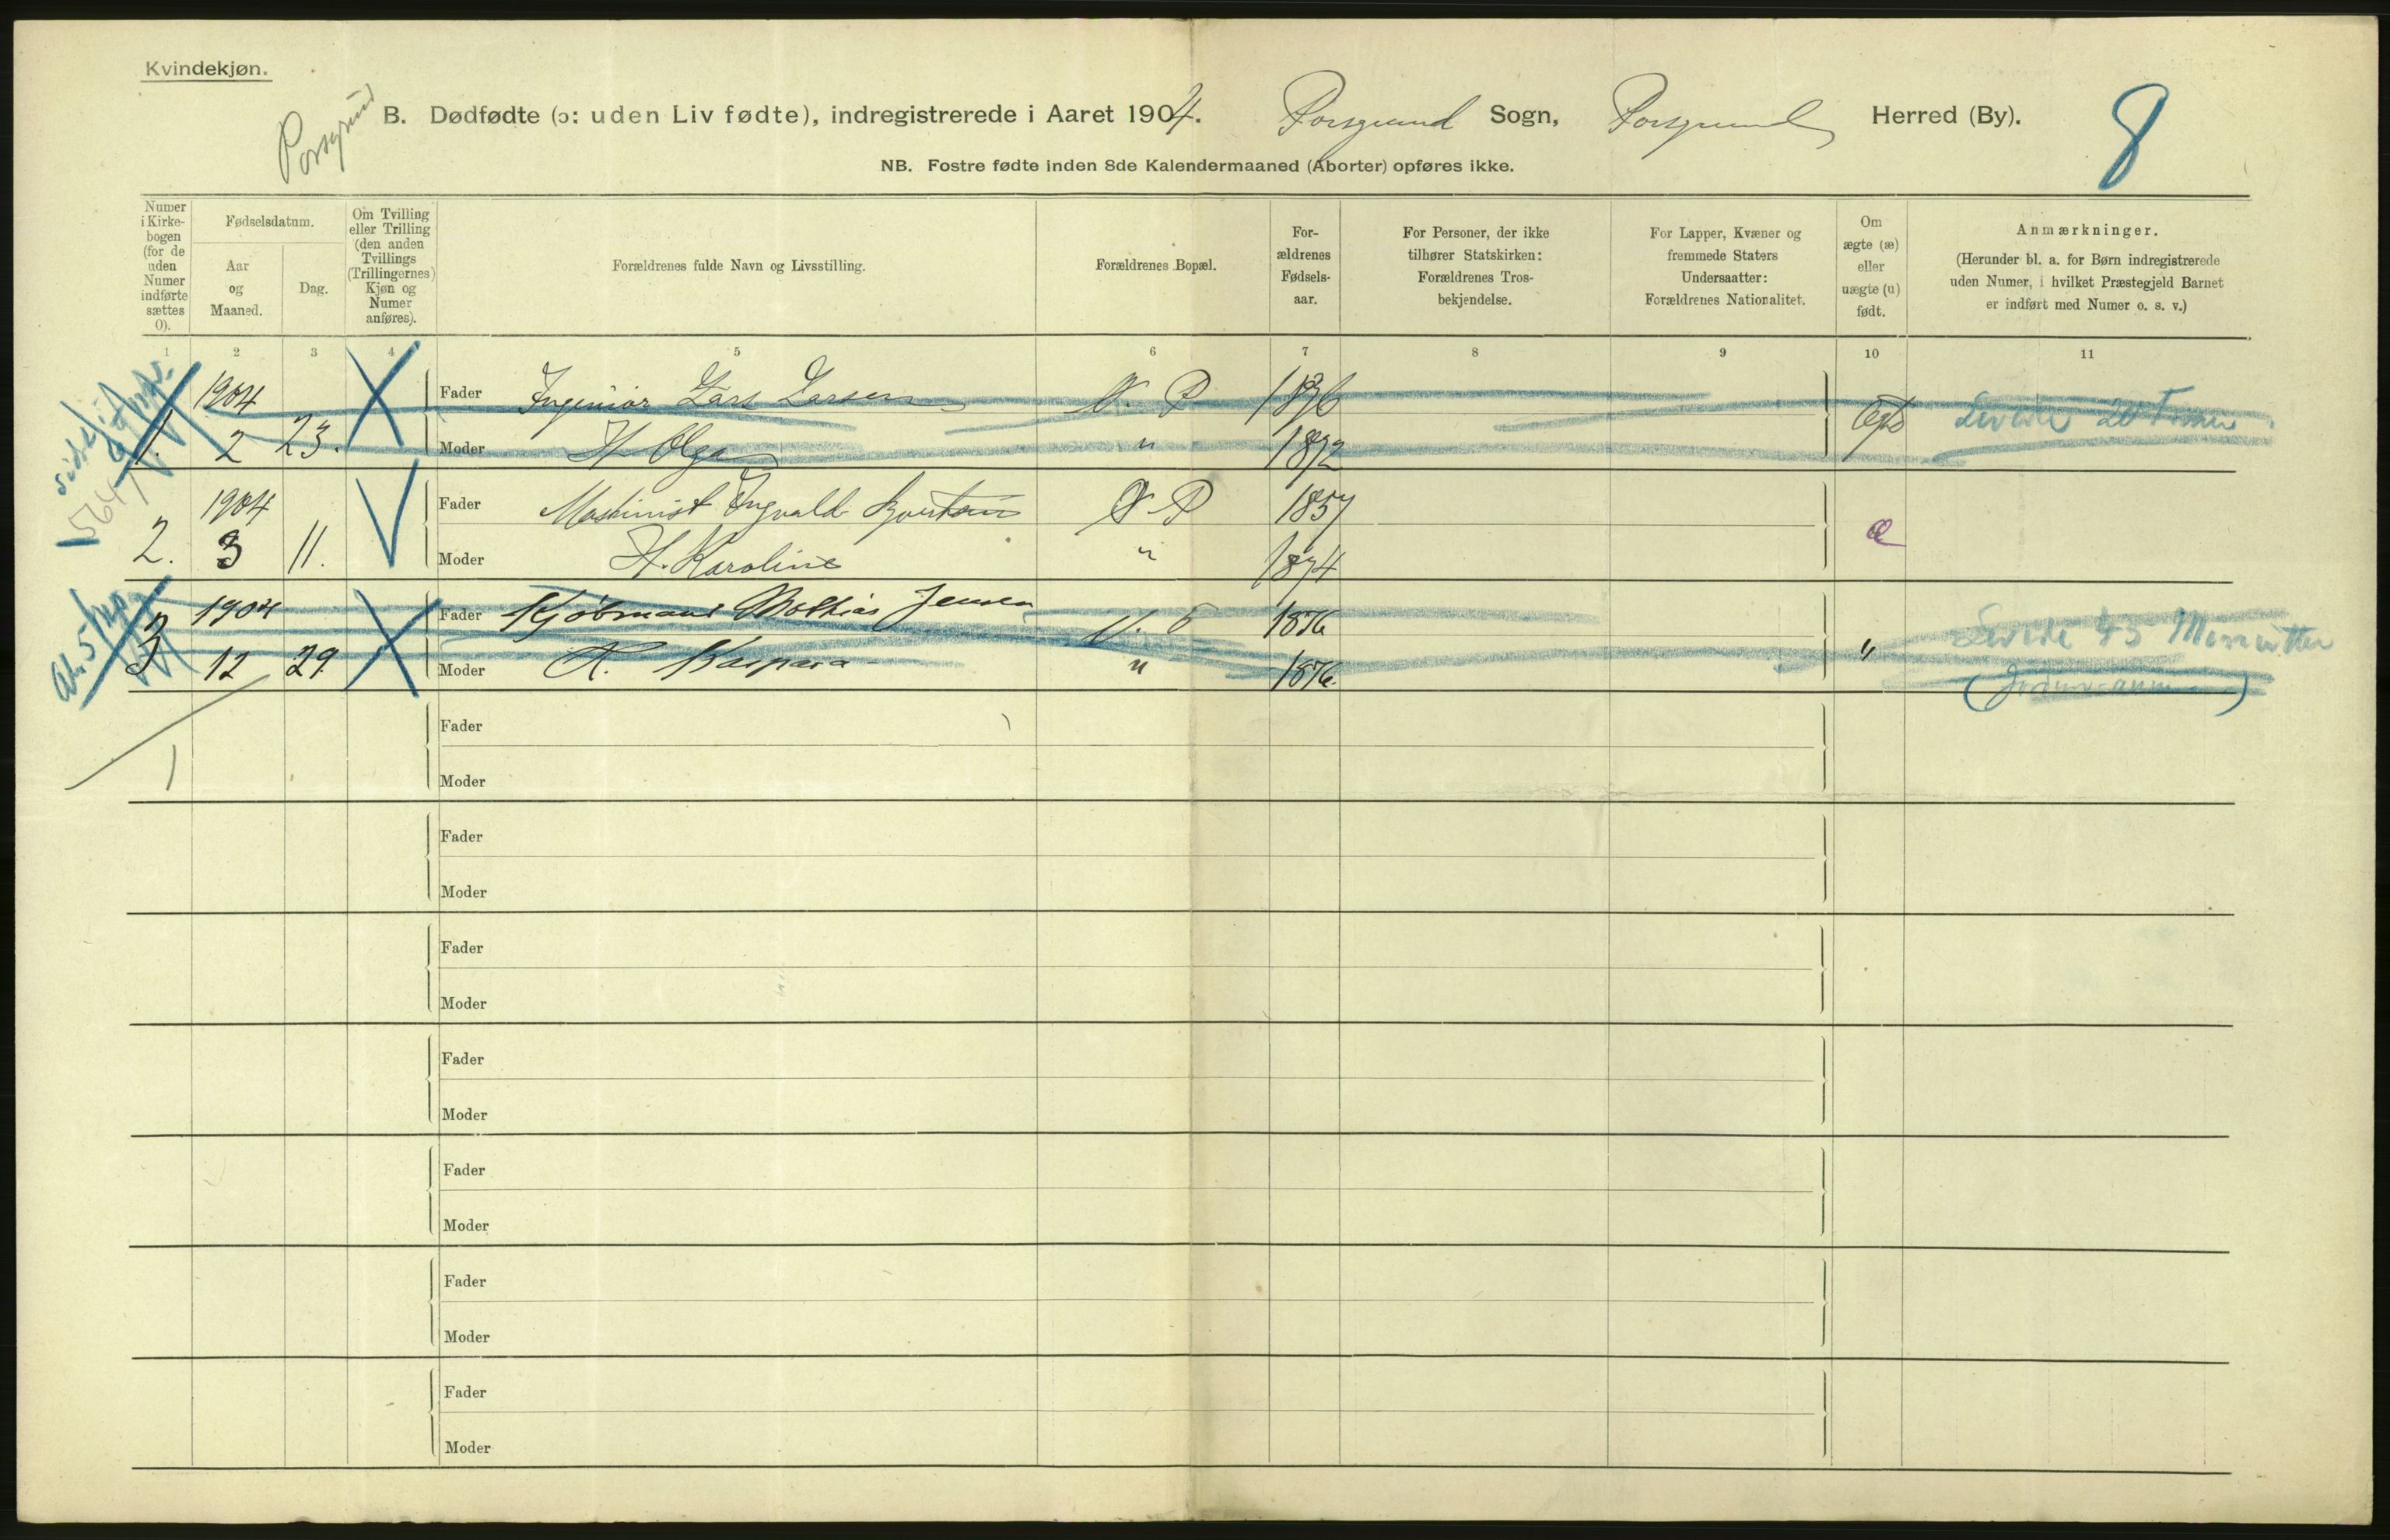 Kvindekjøn.
Porsgrund
B. Dødfødte (ɔ: uden Liv fødte), indregistrerede i Aaret 1904. Porsgrund Sogn, Porsgrund Herred (By).
8
NB. Fostre fødte inden 8de Kalendermaaned (Aborter) opføres ikke.
Numer i Kirke-
bogen
(for de
uden
Numer
indførte
sættes
0).
Fødselsdatum.
Aar
og
Maaned.
Dag.
Om Tvilling
eller Trilling
(den anden
Tvillings
(Trillingernes)
Kjøn og
Numer
anføres).
Forældrenes fulde Navn og Livsstilling.
Forældrenes Bopæl.
For-
ældrenes
Fødsels-
aar.
For Personer, der ikke
tilhører Statskirken:
Forældrenes Tros-
bekjendelse.
For Lapper, Kvæner og
fremmede Staters
Undersaatter:
Forældrenes Nationalitet.
Om
ægte (æ)
eller
uægte (u)
født.
Anmærkninger.
(Herunder bl. a. for Børn indregistrerede
uden Numer, i hvilket Præstegjeld Barnet
er indført med Numer o. s. v.)
1 2 3 4 5 6 7 8 9 10 11
1904 Fader Ingeniør Lars Larsen V. P 1876
1. 2 23. Moder H. Olga " 1872
Levede 20 Timer
1904 Fader Maskinist Ingvald V. P 1857
2. 3 11. Moder H. Karoline " 1874
æ
1904 Fader Kjøbmand Mathias Jensen V. 1876
3 12 29. Moder K. Kaspara " 1876.
" Levede 45 Minutter
Fader
Moder
Fader
Moder
Fader
Moder
Fader
Moder
Fader
Moder
Fader
Moder
Fader
Moder